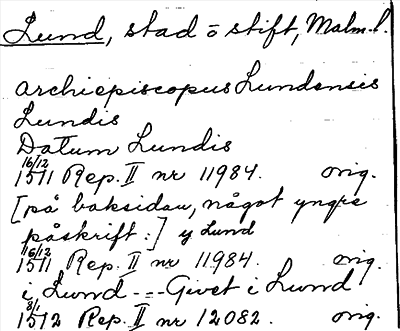 Lund, stad o stift, Malm. l.
archiepiscopus Lundensis
Lundis
Datum Lundis
16/12
1511 Rep. II nr 11984. orig.
[på baksidan, något yngre
påskrift:] y Lund
16/12
1511 Rep. II nr 11984. orig.
i Lund --- Givet i Lund
3/1
1512 Rep. II nr 12082. orig.